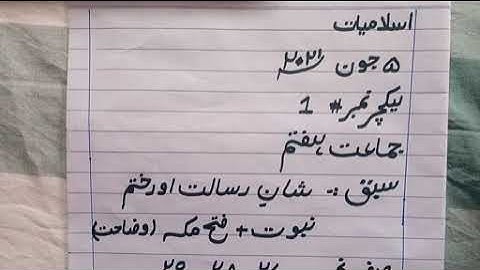 اسلامیات
۵ جون ۲۰۲۱
لیکچر نمبر # 1
جماعت ہفتم
سبق :- شانِ رسالت اور ختم
نبوت + فتح مکہ (وضاحت)